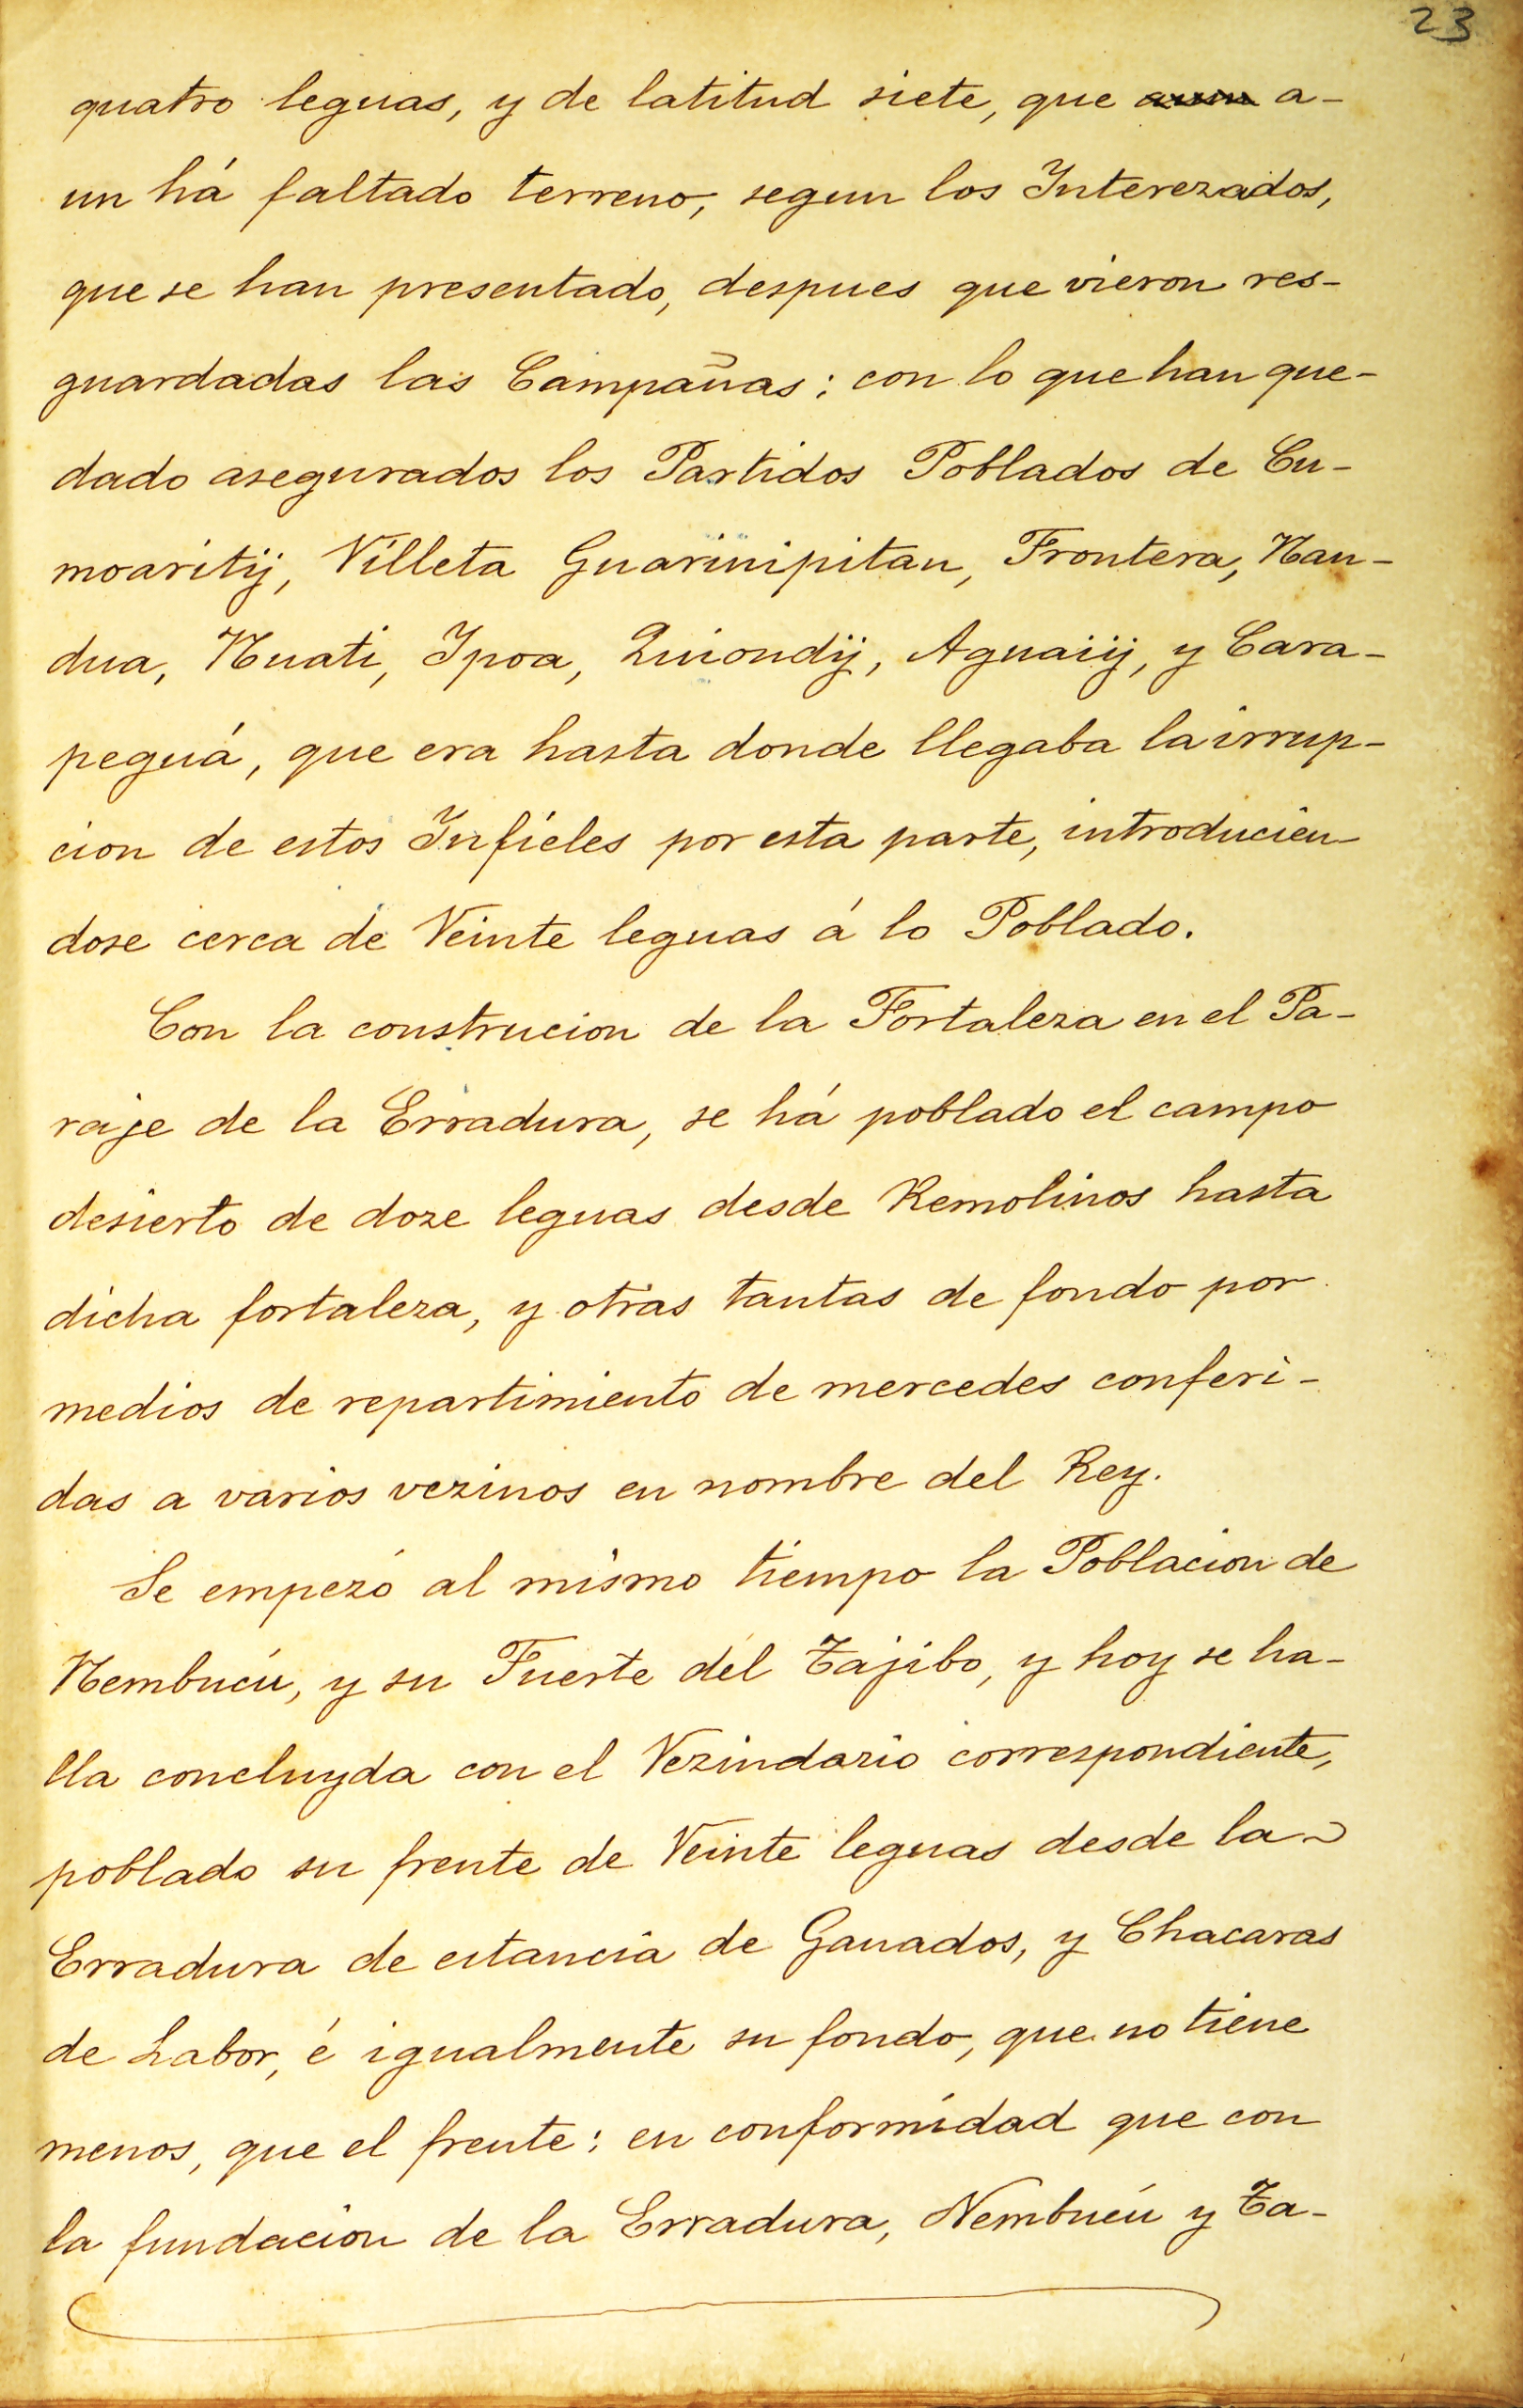 23
quatro leguas, y de latitud siete, que a-
un há faltado terreno, segun los Interezados,
que se han presentado, despues que vieron res-
guardadas las Campañas; con lo que han que-
dado asegurados los Partidos Poblados de Cu-
moaritij, Villeta Guarinipitan, Frontera, Ñan-
dua, Ñuati, Ipoa, Quiondij, Aguaiij, y Cara-
peguá, que era hasta donde llegaba la irrup-
cion de estos Infieles por esta parte, introducien-
dose cerca de Veinte leguas á lo Poblado.
Con la construcion de la Fortaleza en el Pa-
raje de la Erradura, se há poblado el campo
desierto de doze leguas desde Remolinos hasta
dicha fortaleza, y otras tantas de fondo por
medios de repartimiento de mercedes conferi-
das a varios vezinos en nombre del Rey.
Se empezó al mismo tiempo la Poblacion de
Ñembucú, y su Fuerte del Tajibo, y hoy se ha-
lla concluyda con el Vezindario correspondiente,
poblado su frente de Veinte leguas desde la
Erradura de estancia de Ganados, y Chacaras
de Labor, é igualmente su fondo, que no tiene
menos, que el frente: en conformidad que con
la fundacion de la Erradura, Nembucú y Ta-